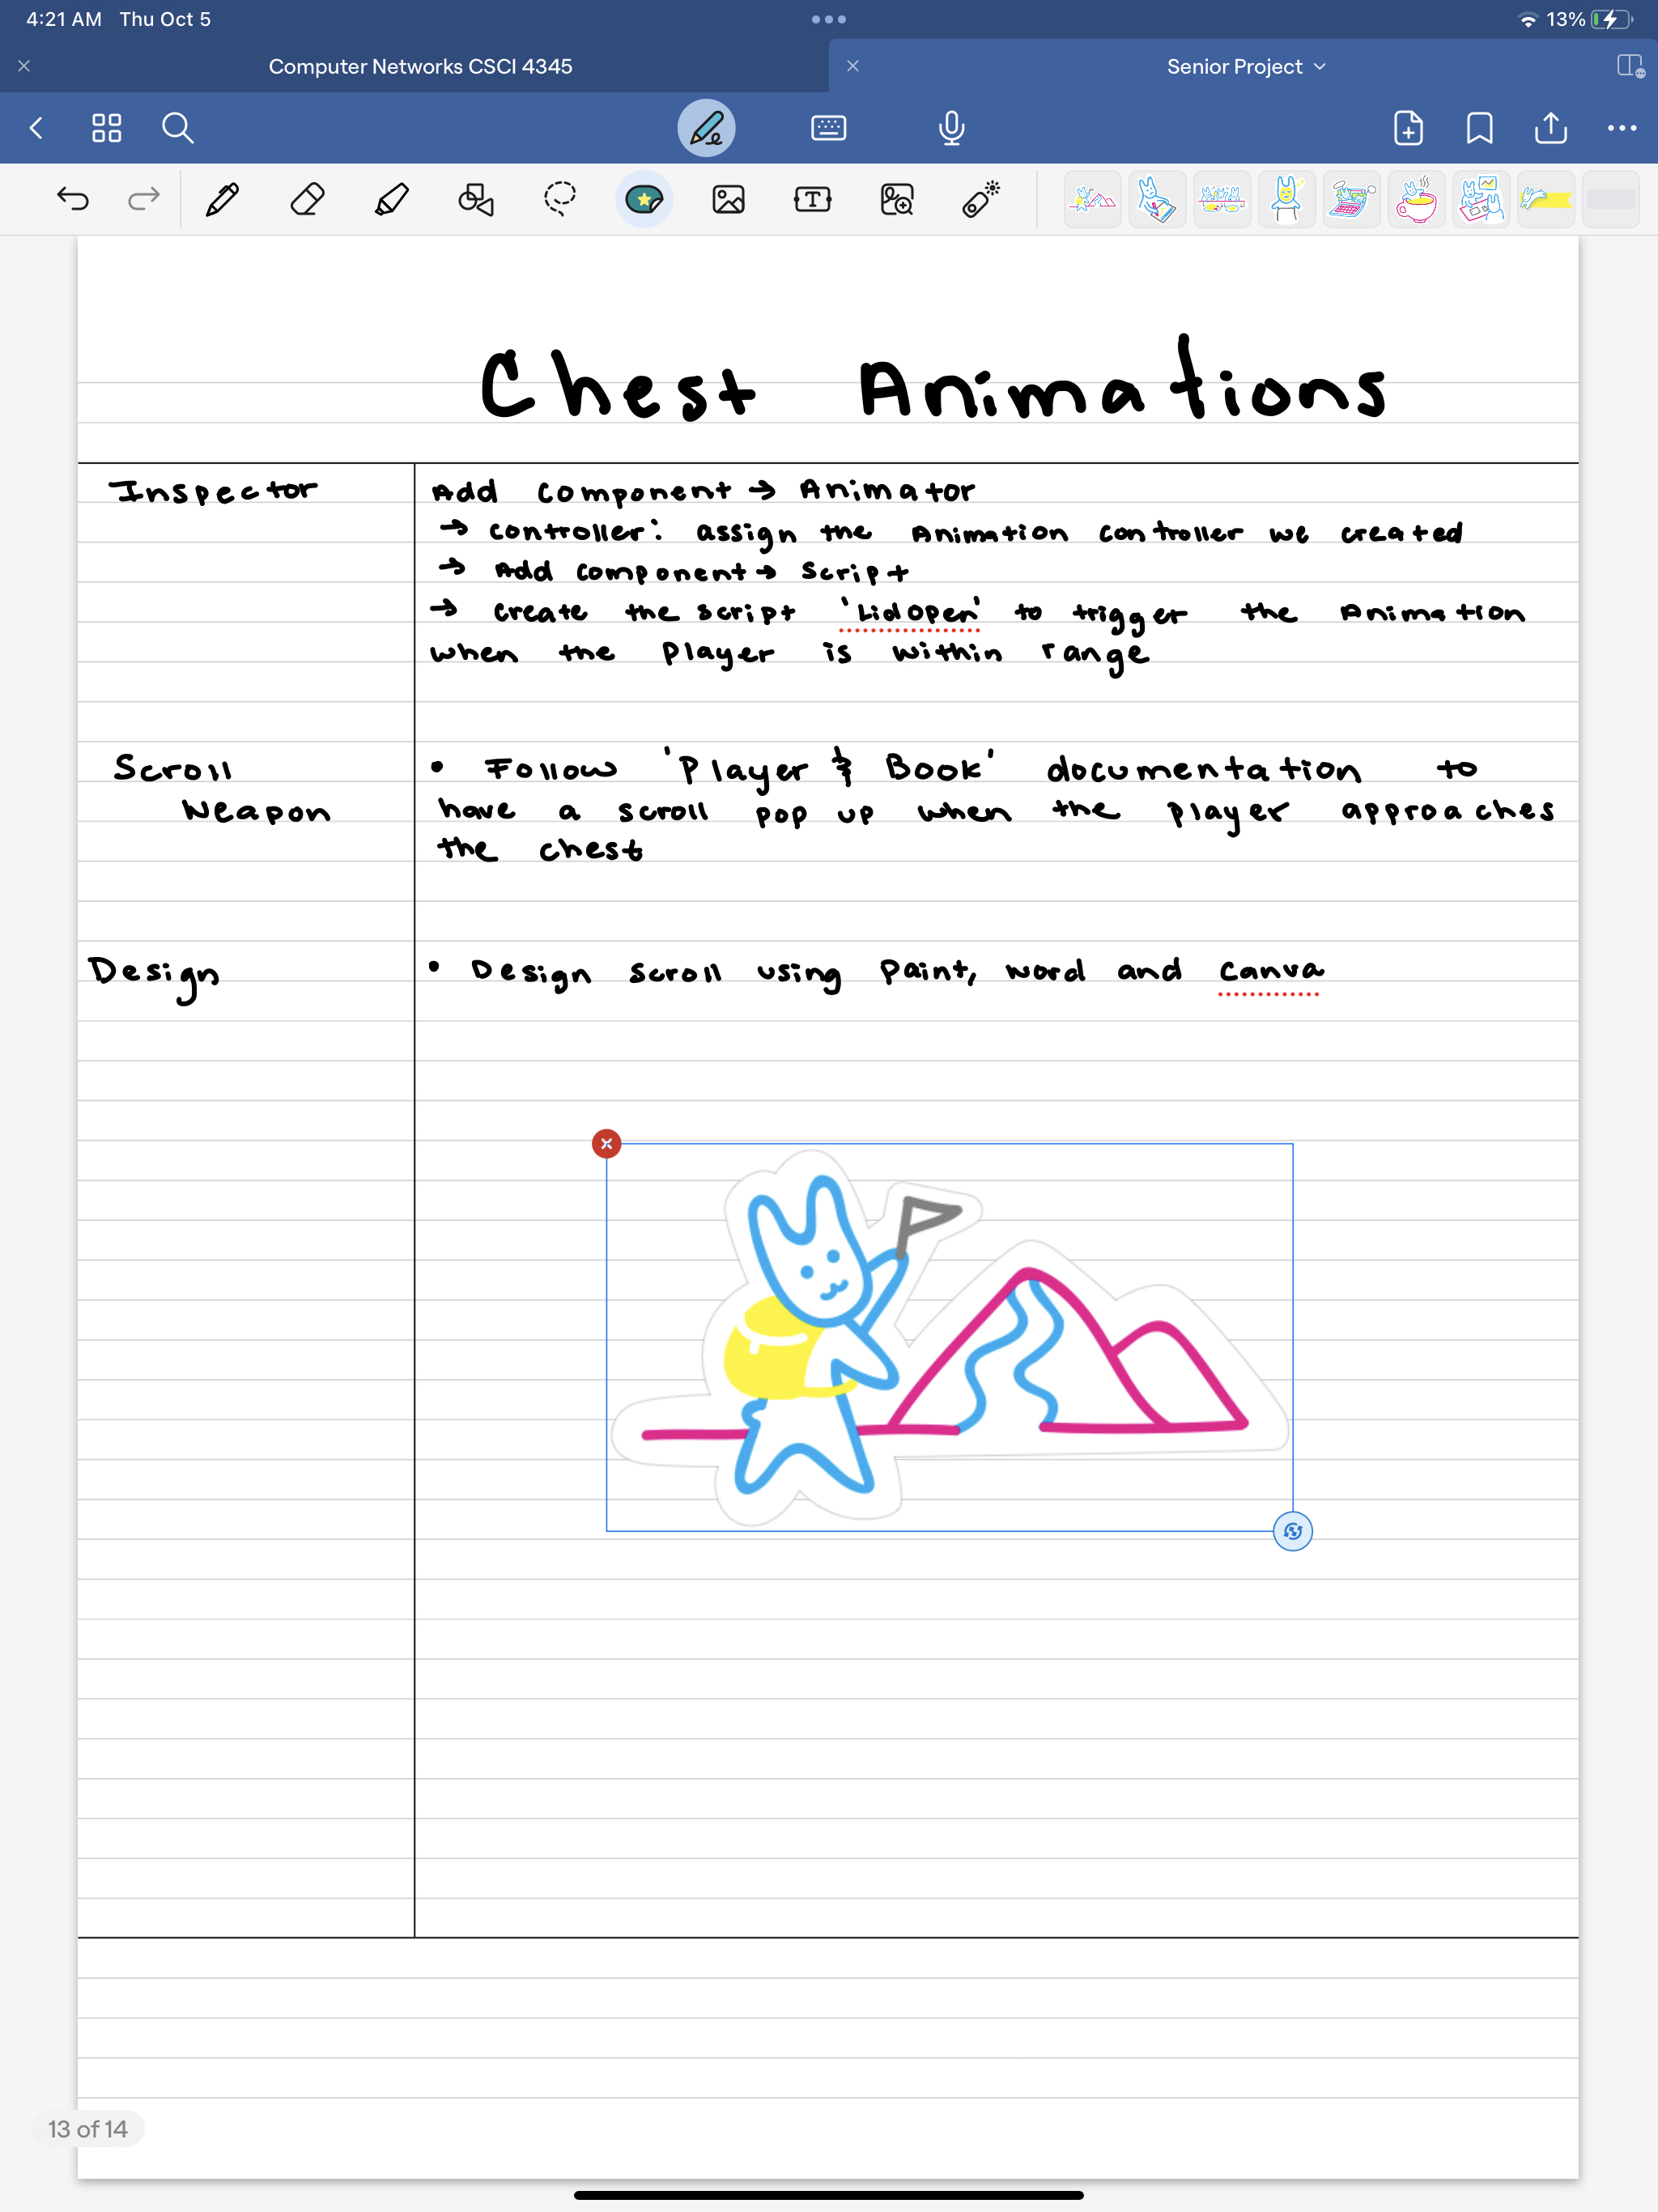 4:21 AM Thu Oct 5
13%
Computer Networks CSCI 4345
Senior Project
Chest Animations
Inspector
Add Component → Animator
→ controller: assign the Animation controller we created
→ Add component → Script
→ create the script 'LidOpen' to trigger the Animation
when the Player is within range
Scroll
Weapon
• Follow 'Player & Book' documentation to
have a scroll pop up when the player approaches
the chest
Design
• Design scroll using Paint, word and Canva
13 of 14